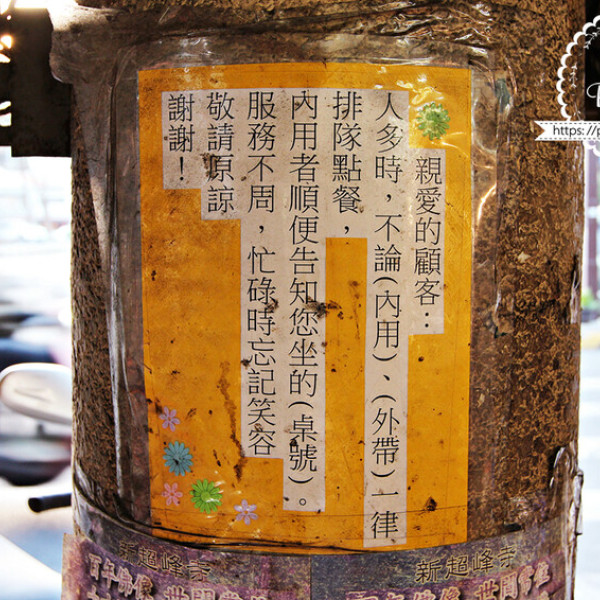 親愛的顧客：
人多時，不論(內用)、(外帶)一律
排隊點餐，
內用者順便告知您坐的(桌號)。
服務不周，忙碌時忘記笑容
敬請原諒
謝謝！
新超峰寺
新超峰寺
https://p